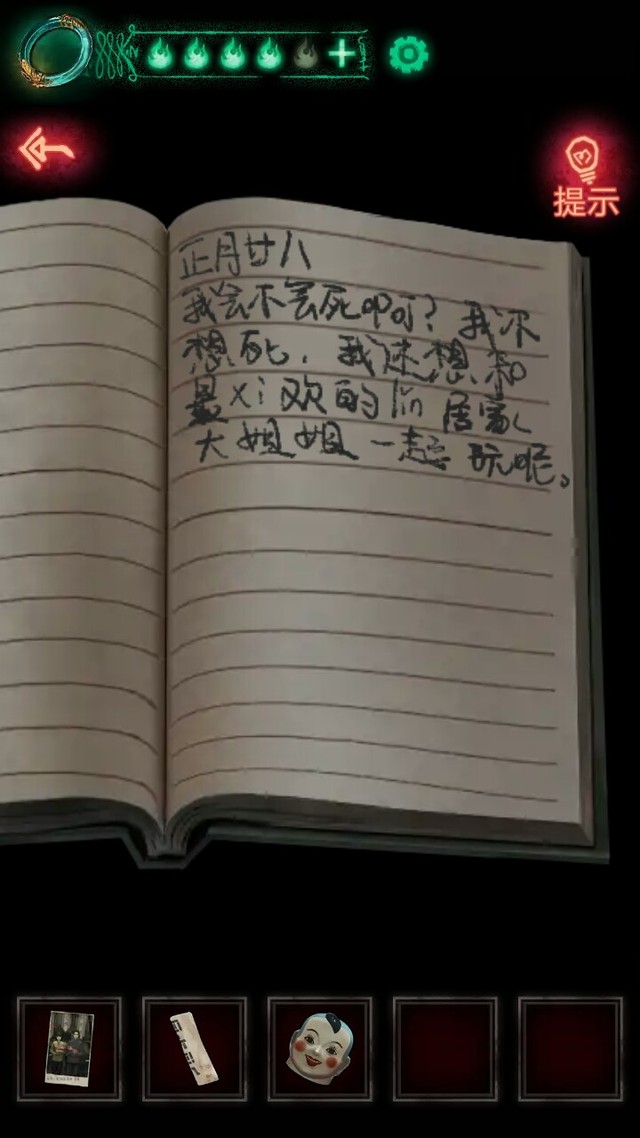 提示
正月廿八
我会不会死啊？我不
想死，我还想和
最xi欢的lin居家
大姐姐一起玩呢。